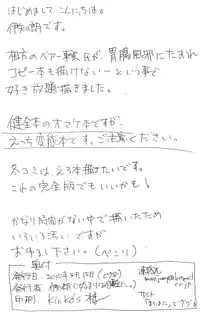 はじめまして こんにちは。
相方のベアー 氏が、胃腸風邪にたおれ
コピー本も描けないーという事で
好き放題描きました。
健全本のオマケ本ですが、
えっち変態本です。ご注意ください。
冬コミは、えろ本描きたいです。
これの完全版でもいいかも!
かなり時間がない中で描いたため
いろいろ汚いですが
お許し下さい。(ぺこり)
奥付
発行日
発行者
印刷 Kinko's 様
連絡先
サイト